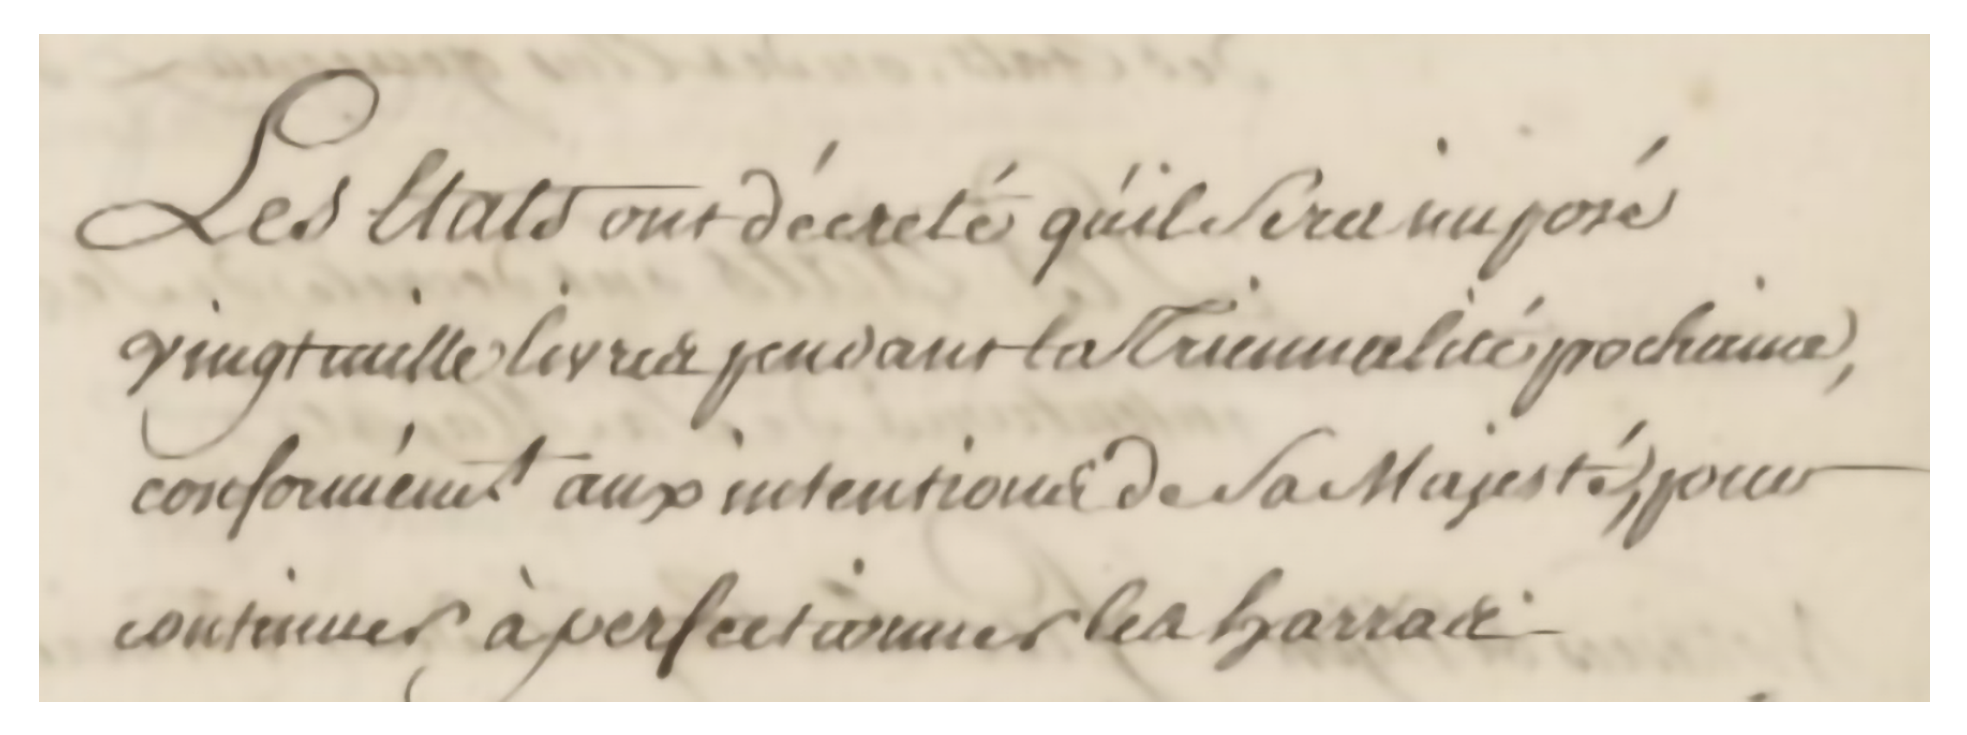 Les Etats ont décreté qu'il sera imposé
vingt mille livres pendant la Triennalité pochaine,
conformément aux intentions de Sa Majesté, pour
continuer à perfectionner les harras.